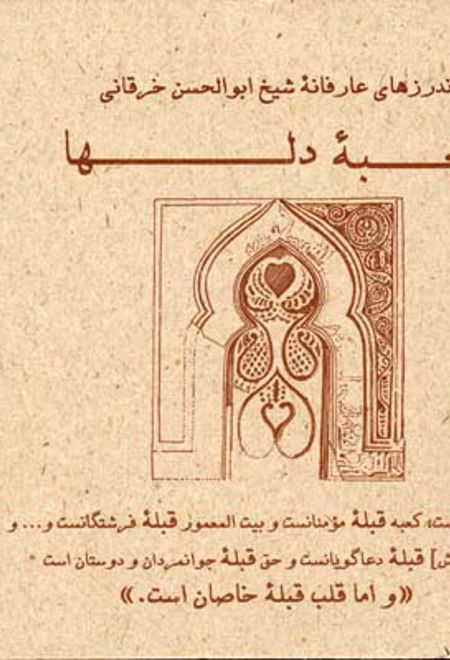 ندرزهای عارفانهٔ شیخ ابوالحسن خرقانی
ـبهٔ دلـها
ست، کعبه قبلهٔ مؤمنانست و بیت المعمور قبلهٔ فرشتگانست و... و
ش] قبلهٔ دعاگویانست و حق قبلهٔ جوانمردان و دوستان است
«و اما قلب قبلهٔ خاصان است.»